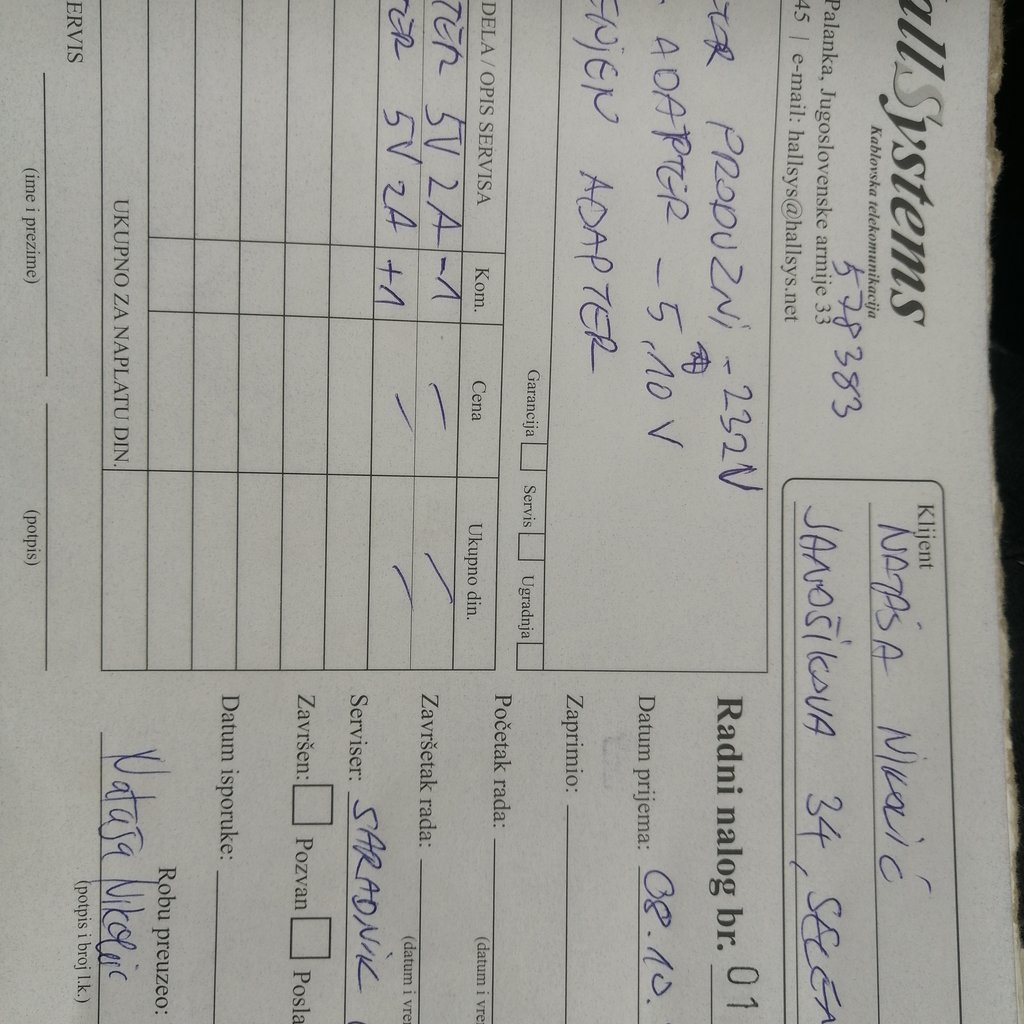 HallSystems
Kablovska telekomunikacija
578383
Palanka, Jugoslovenske armije 33
45 | e-mail: hallsys@hallsys.net
Klijent
NATAŠA NIKOLIĆ
JANOŠIKOVA 34,
PRODUZNI - 232V
ADAPTER - 5,10 V
ENJEN ADAPTER
Garancija Servis Ugradnja
DELA / OPIS SERVISA Kom. Cena Ukupno din.
TER 5V 2A -1 / /
TER 5V 2A +1 / /
UKUPNO ZA NAPLATU DIN.
ERVIS
(ime i prezime) (potpis)
Radni nalog br. 01
Datum prijema: 08.10.
Zaprimio:
Početak rada:
(datum i vre
Završetak rada:
(datum i vre
Serviser: SARADNIK
Završen: Pozvan Posla
Datum isporuke:
Robu preuzeo:
Nataša Nikolić
(potpis i broj l.k.)